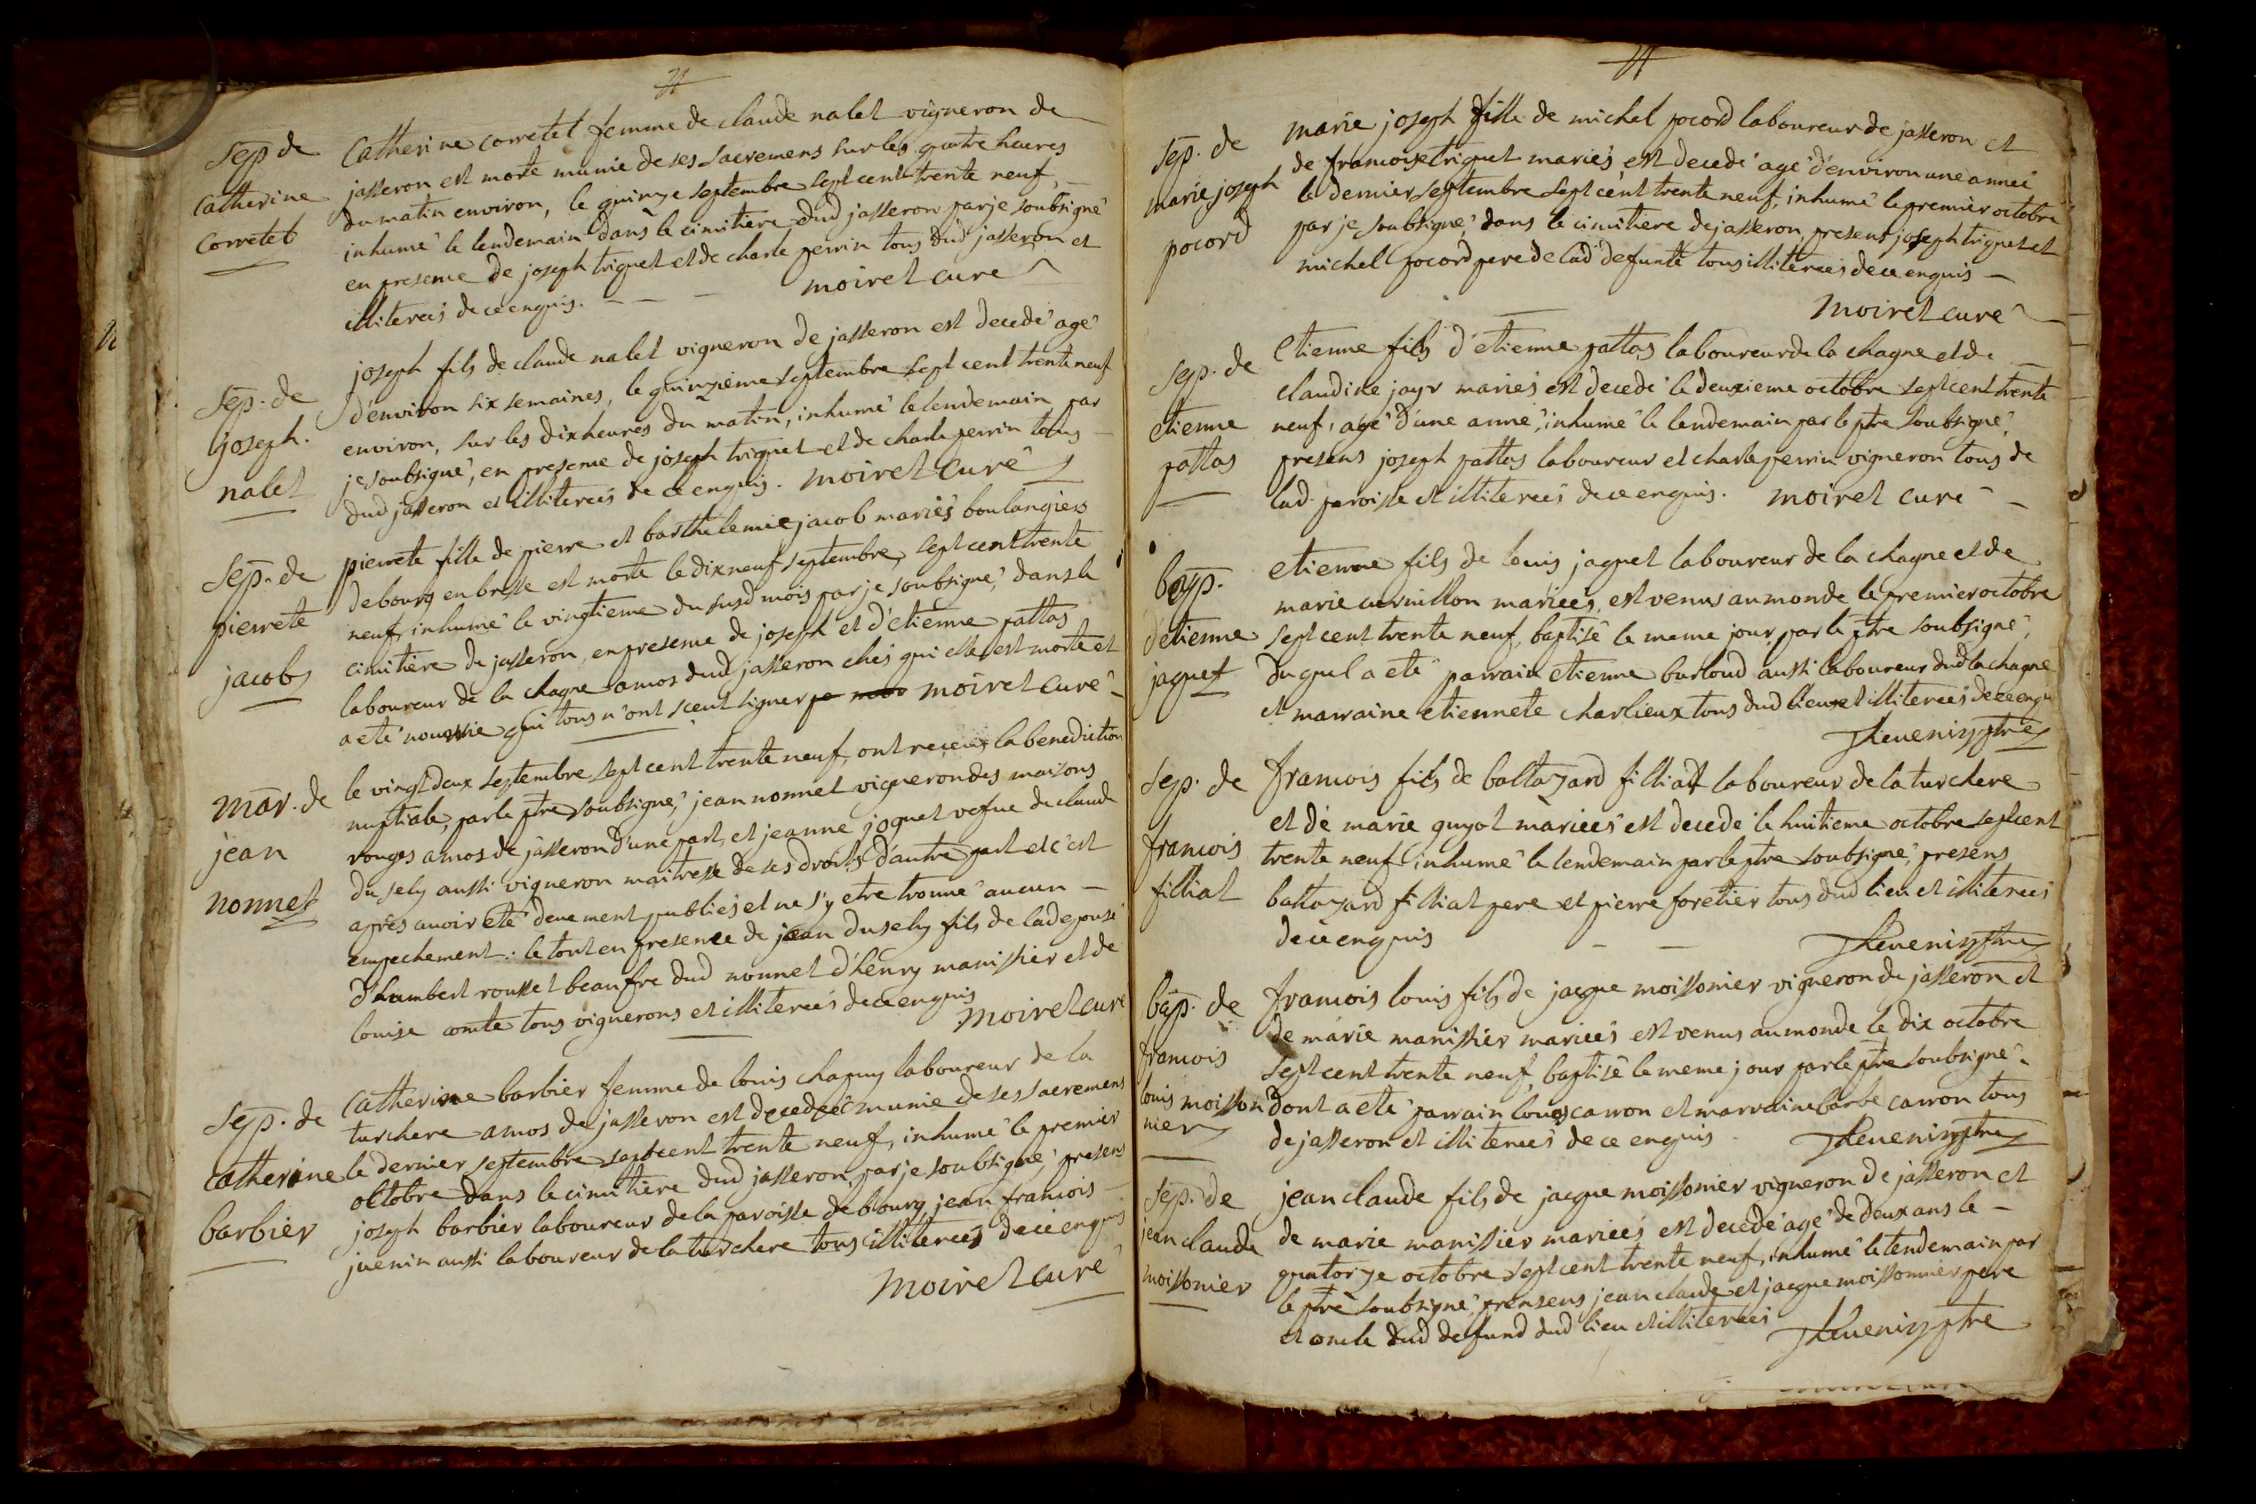 Sep. de
Catherine
Corretet
Catherine corretet femme de claude nalet vigneron de
jasseron est morte munie de ses sacremens sur les quatre heures
du matin environ, le quinze septembre sept cent trente neuf,
inhumé le lendemain dans le cimitiere dud jasseron par je soubsigné
en presence de joseph triquet et de charle perrin tous dud jasseron et
illitereés de ce enquis.
moiret curé
Sep. de
joseph.
nalet
joseph fils de claude nalet vigneron de jasseron est decedé agé
d'environ six semaines, le quinzieme septembre sept cent trente neuf
environ, sur les dix heures du matin, inhumé le lendemain par
je soubsigné, en presence de joseph triquet et de charle perrin tous
dud jasseron et illitereés de ce enquis. moiret curé
Sep. de
pierrete
jacob
pierrete fille de pierre et barthelemie jacob mariés boulangiers
de bourg en bresse est morte le dix neuf septembre, sept cent trente
neuf, inhumé le vingtieme du susd mois par je soubsigné, dans le
cimitiere de jasseron, en presence de joseph et d'etienne pattas
laboureur de la chagne amos dud jasseron chés qui elle est morte et
a eté nourrie qui tous n'ont sceut signer moiret curé
mar. de
jean
nonnet
le vingt deux septembre sept cent trente neuf, ont receus la benediction
nuptiale, par le ptre soubsigné, jean nonnet vigneron des maisons
rouges amos de jasseron d'une part, et jeanne joquet vefue de claude
du sely aussi vigneron maitresse de ses droits d'autre part et c'est
apres avoir eté deuement publiés et ne s'y etre trouué aucun
empechement. le tout en presence de jean du sely fils de lad epousé
d'humbert rousset beaufre dud nonnet d'henry manissier et de
louise comte tous vignerons et illitereés de ce enquis
moiret curé
Sep. de
catherine
barbier
Catherine barbier femme de louis chapuy laboureur de la
turchere amos de jasseron est decedeé munie de ses sacremens
le dernier septembre sept cent trente neuf, inhumé le premier
octobre dans le cimitiere dud jasseron, par je soubsigné, presens
joseph barbier laboureur de la paroisse de bourg, jean francois
juenin aussi laboureur de la turchere tous illitereés de ce enquis
moiret curé
Sep. de
marie joseph
pocord
marie joseph fille de michel pocord laboureur de jasseron et
de francoise triquet mariés est decedé agé d'environ une anneé
le dernier septembre sept cent trente neuf, inhumé le premier octobre
par je soubsigné, dans le cimitiere de jasseron, presens joseph triquet et
michel pocord pere de lad defunte tous illitereés de ce enquis
moiret curé
Sep. de
etienne
pattas
Etienne fils d'etienne pattas laboureur de la chagne et de
claudine jayr mariés est decedé le deuxieme octobre sept cent trente
neuf, agé d'une anné, inhumé le lendemain par le ptre soubsigné,
presens joseph pattas laboureur et charle perrin vigneron tous de
lad. paroisse et illitereés de ce enquis. moiret curé
bap.
d'etienne
jaquet
etienne fils de louis jaquet laboureur de la chagne et de
marie mariees, est venus au monde le premier octobre
sept cent trente neuf, baptisé le meme jour, par le ptre soubsigné,
duquel a eté parrain etienne burtoud aussi laboureur dud la chagne
et marraine etiennete charlieux tous dud lieux et illitereés de ce enqu
Theuenin ptre
Sep. de
francois
filliat
francois fils de baltazard filliat laboureur de la turchere
et de marie guyot marieés est decedé le huitieme octobre sept cent
trente neuf inhumé le lendemain par le ptre soubsigné, presens
baltazard filliat pere et pierre foretier tous dud lieu et illitereés
de ce enquis
Theuenin ptre
bap. de
francois
louis moisson
nier
francois louis fils de jacque moissonier vigneron de jasseron et
de marie manissier marieés est venus au monde le dix octobre
sept cent trente neuf, baptisé le meme jour par le ptre soubsigné.
dont a eté parrain louis carron et marraine barbe carron tous
de jasseron et illitereés de ce enquis
Theuenin ptre
Sep. de
jean claude
moissonier
jean claude fils de jacque moissonier vigneron de jasseron et
de marie manissier marieés est decedé agé de deux ans le
quatorze octobre sept cent trente neuf, inhumé le lendemain par
le ptre soubsigné, prensens jean claude et jacque moissonnier pere
et oncle dud defund dud lieu et illitereés
Theuenin ptre